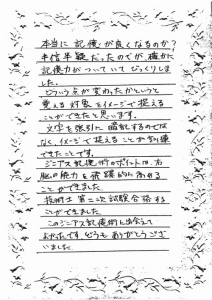 本当に記憶が良くなるのか？
半信半疑だったのですが、確かに
記憶力がついていてびっくりしま
した。
どういう点が変わったかというと
覚える対象をイメージで捉える
ことができたと思います。
文字を強引に暗記するのでは
なく、イメージで捉えることが出来
できたことです。
ジニアス記憶術のポイントは、右
脳の能力を飛躍的に高める
ことができました。
技術士第二次試験合格する
ことができました。
このジニアス記憶術に出会えて
よかったです。どうもありがとうござ
いました。